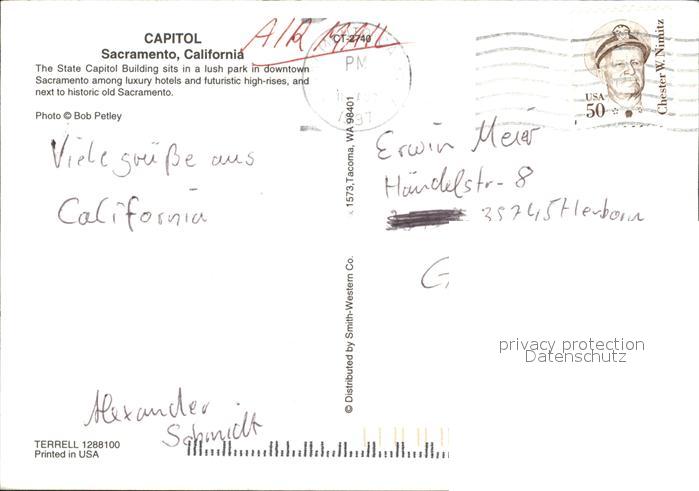 CAPITOL
Sacramento, California
The State Capitol Building sits in a lush park in downtown
Sacramento among luxury hotels and futuristic high-rises, and
next to historic old Sacramento.
Photo © Bob Petley
AIR MAIL
CT-2740
PM
97
USA
50
Chester W. Nimitz
Viele grüße aus
California
Alexander
Schmidt
TERRELL 1288100
Printed in USA
© Distributed by Smith-Western Co.
1573, Tacoma, WA 98401
Erwin Meier
Händelstr. 8
35745 Herborn
G
privacy protection
Datenschutz